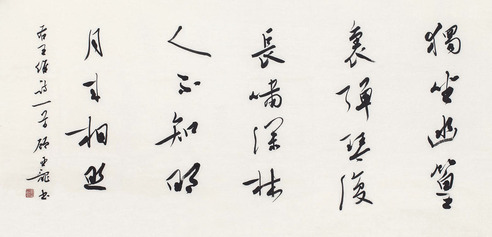 獨坐幽篁
裏彈琴復
長嘯深林
人不知明
月来相照
右王維詩一首 顧亞龍書